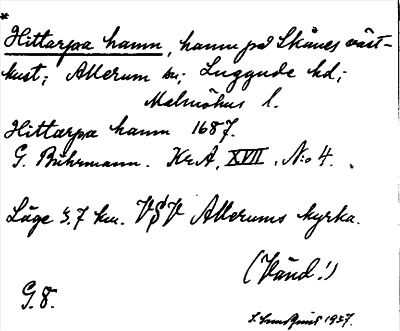 *
Hittarpa hamn, hamn på Skånes väst-
kust; Allerum sn; Luggude hd;
Malmöhus l.
Hittarpa hamn 1687.
G. Buhrmann. Kr.A. XVII. N:o 4.
Läge 3.7 km. VSV Allerums kyrka.
(Vänd!)
G. 8.
1937.